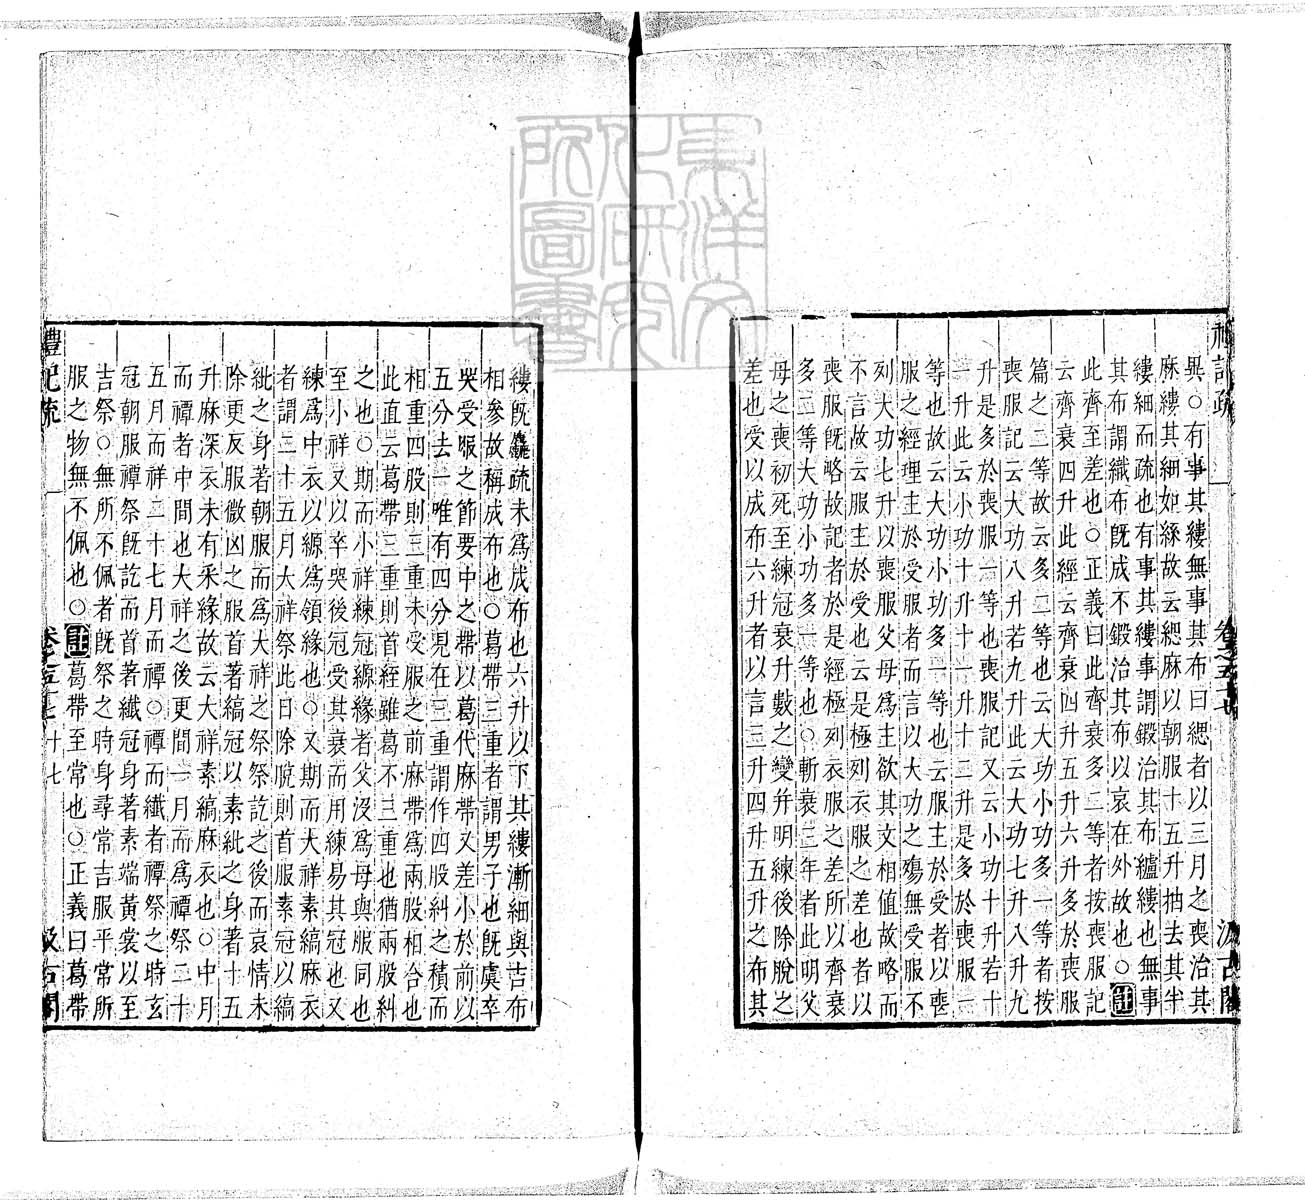 異○有事其縷無事其布曰緦者以三月之喪治其
麻縷其細如絲故云緦麻以朝服十五升抽去其半
縷細而疏也有事其縷事謂鍛治其布纑縷也無事
其布謂織布既成不鍛治其布以哀在外故也○註
此齊至差也○正義曰此齊衰多二等者按喪服記
云齊衰四升此經云齊衰四升五升六升多於喪服
篇之二等故云多二等也云大功小功多一等者按
喪服記云大功八升若九升此云大功七升八升九
升是多於喪服一等也喪服記又云小功十升若十
一升此云小功十升十一升十二升是多於喪服一
等也故云大功小功多一等也云服主於受者以喪
服之經理主於受服者而言以大功之殤無受服不
列大功七升以喪服父母為主欲其文相值故略而
不言故云服主於受也云是極列衣服之差也者以
喪服既略故記者於是經極列衣服之差所以齊衰
多二等大功小功多一等也○斬衰三年者此明父
母之喪初死至練冠衰升數之變并明練後除脫之
差也受以成布六升者以言三升四升五升之布其
縷既麤疏未為成布也六升以下其縷漸細與吉布
相參故稱成布也○葛帶三重者謂男子也既虞卒
哭受服之節要中之帶以葛代麻帶又差小於前以
五分去一唯有四分見在三重謂作四股糾之積而
相重四股則三重未受服之前麻帶為兩股相合也
此直云葛帶三重則首絰雖葛不三重也猶兩股糾
之也○期而小祥練冠縓緣者父沒為母與服同也
至小祥又以卒哭後冠受其衰而用練易其冠也又
練為中衣以縓為領緣也○又期而大祥素縞麻衣
者謂二十五月大祥祭此日除脫則首服素冠以縞
紕之身著朝服而為大祥之祭祭訖之後而哀情未
除更反服微凶之服首著縞冠以素紕之身著十五
升麻深衣未有采緣故云大祥素縞麻衣也○中月
而禫者中間也大祥之後更間一月而為禫祭二十
五月而祥二十七月而禫○禫而纖者禫祭之時玄
冠朝服禫祭既訖而首著纖冠身著素端黃裳以至
吉祭○無所不佩者既祭之時身尋常吉服平常所
服之物無不佩也○註葛帶至常也○正義曰葛帶
禮記疏
十七
汲古閣